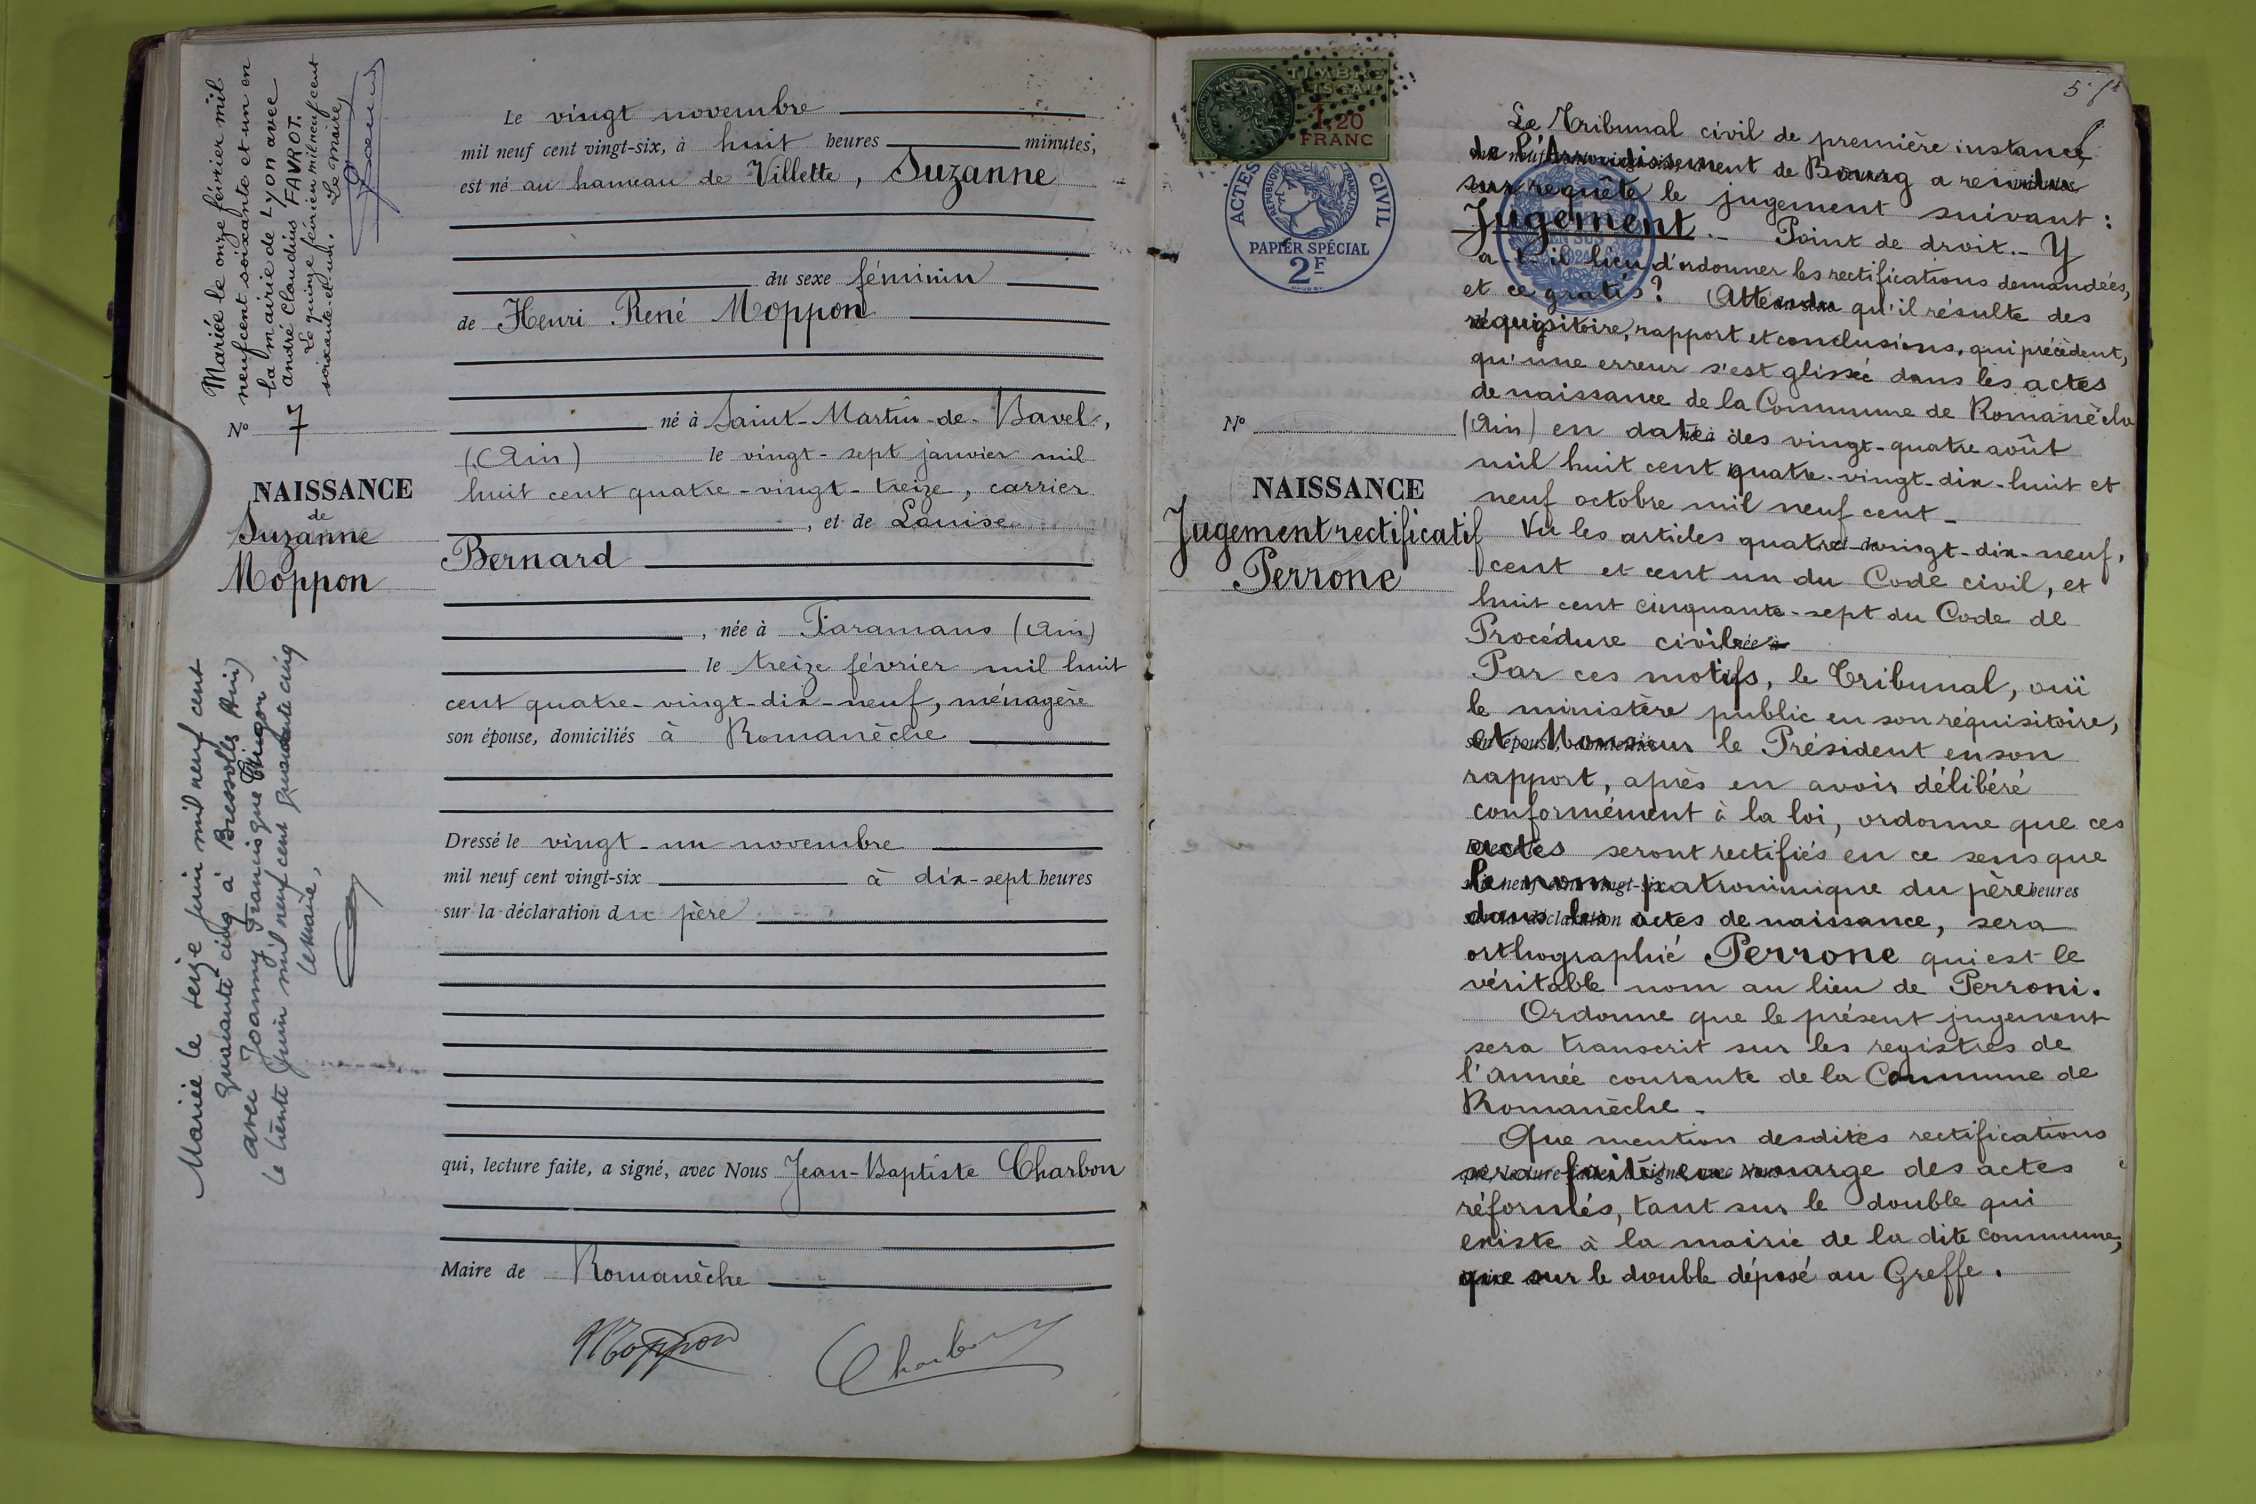 Mariée le onze février mil
neuf cent soixante et un en
la mairie de Lyon avec
André Claudius FAVROT.
Le quinze février mil neuf cent
soixante-et-un. Le Maire,
N° 7
NAISSANCE
de
Suzanne
Moppon
Mariée le seize juin mil neuf cent
quarante cinq à Bressolles (Ain)
avec Joanny Francisque
le trente juin mil neuf cent quarante cinq
Le Maire,
Le vingt novembre
mil neuf cent vingt-six, à huit heures minutes,
est né au hameau de Villette, Suzanne
du sexe féminin
de Henri René Moppon
né à Saint-Martin-de-Bavel,
(Ain) le vingt-sept janvier mil
huit cent quatre-vingt-treize, carrier
, et de Louise
Bernard
, née à Faramans (Ain)
le treize février mil huit
cent quatre-vingt-dix-neuf, ménagère
son épouse, domiciliés à Romanèche
Dressé le vingt-un novembre
mil neuf cent vingt-six à dix-sept heures
sur la déclaration du père
qui, lecture faite, a signé, avec Nous Jean-Baptiste Charbon
Maire de Romanèche
Moppon Charbon
TIMBRE
FISCAL
1,20
FRANC
ACTES CIVIL
REPUBLIQUE FRANÇAISE
PAPIER SPÉCIAL
2F
N°
NAISSANCE
Jugement rectificatif
Perrone
5.
Le Tribunal civil de première instance
de l'Arrondissement de Bourg a rendu
sur requête le jugement suivant :
Jugement.- Point de droit.- Y
a-t-il lieu d'ordonner les rectifications demandées,
et ce gratis? Attendu qu'il résulte des
réquisitoire, rapport et conclusions, qui précèdent,
qu'une erreur s'est glissée dans les actes
de naissance de la Commune de Romanèche
(Ain) en date des vingt-quatre août
mil huit cent quatre-vingt-dix-huit et
neuf octobre mil neuf cent-
Vu les articles quatre-vingt-dix-neuf,
cent et cent un du Code civil, et
huit cent cinquante-sept du Code de
Procédure civile
Par ces motifs, le Tribunal, ouï
le ministère public en son réquisitoire,
et Monsieur le Président en son
rapport, après en avoir délibéré
conformément à la loi, ordonne que ces
actes seront rectifiés en ce sens que
le nom patronimique du père heures
dans les actes de naissance, sera
orthographié Perrone qui est le
véritable nom au lieu de Perroni.
Ordonne que le présent jugement
sera transcrit sur les registres de
l'année courante de la Commune de
Romanèche.
Que mention desdites rectifications
sera faite en marge des actes
réformés, tant sur le double qui
existe à la mairie de la dite commune,
que sur le double déposé au Greffe.